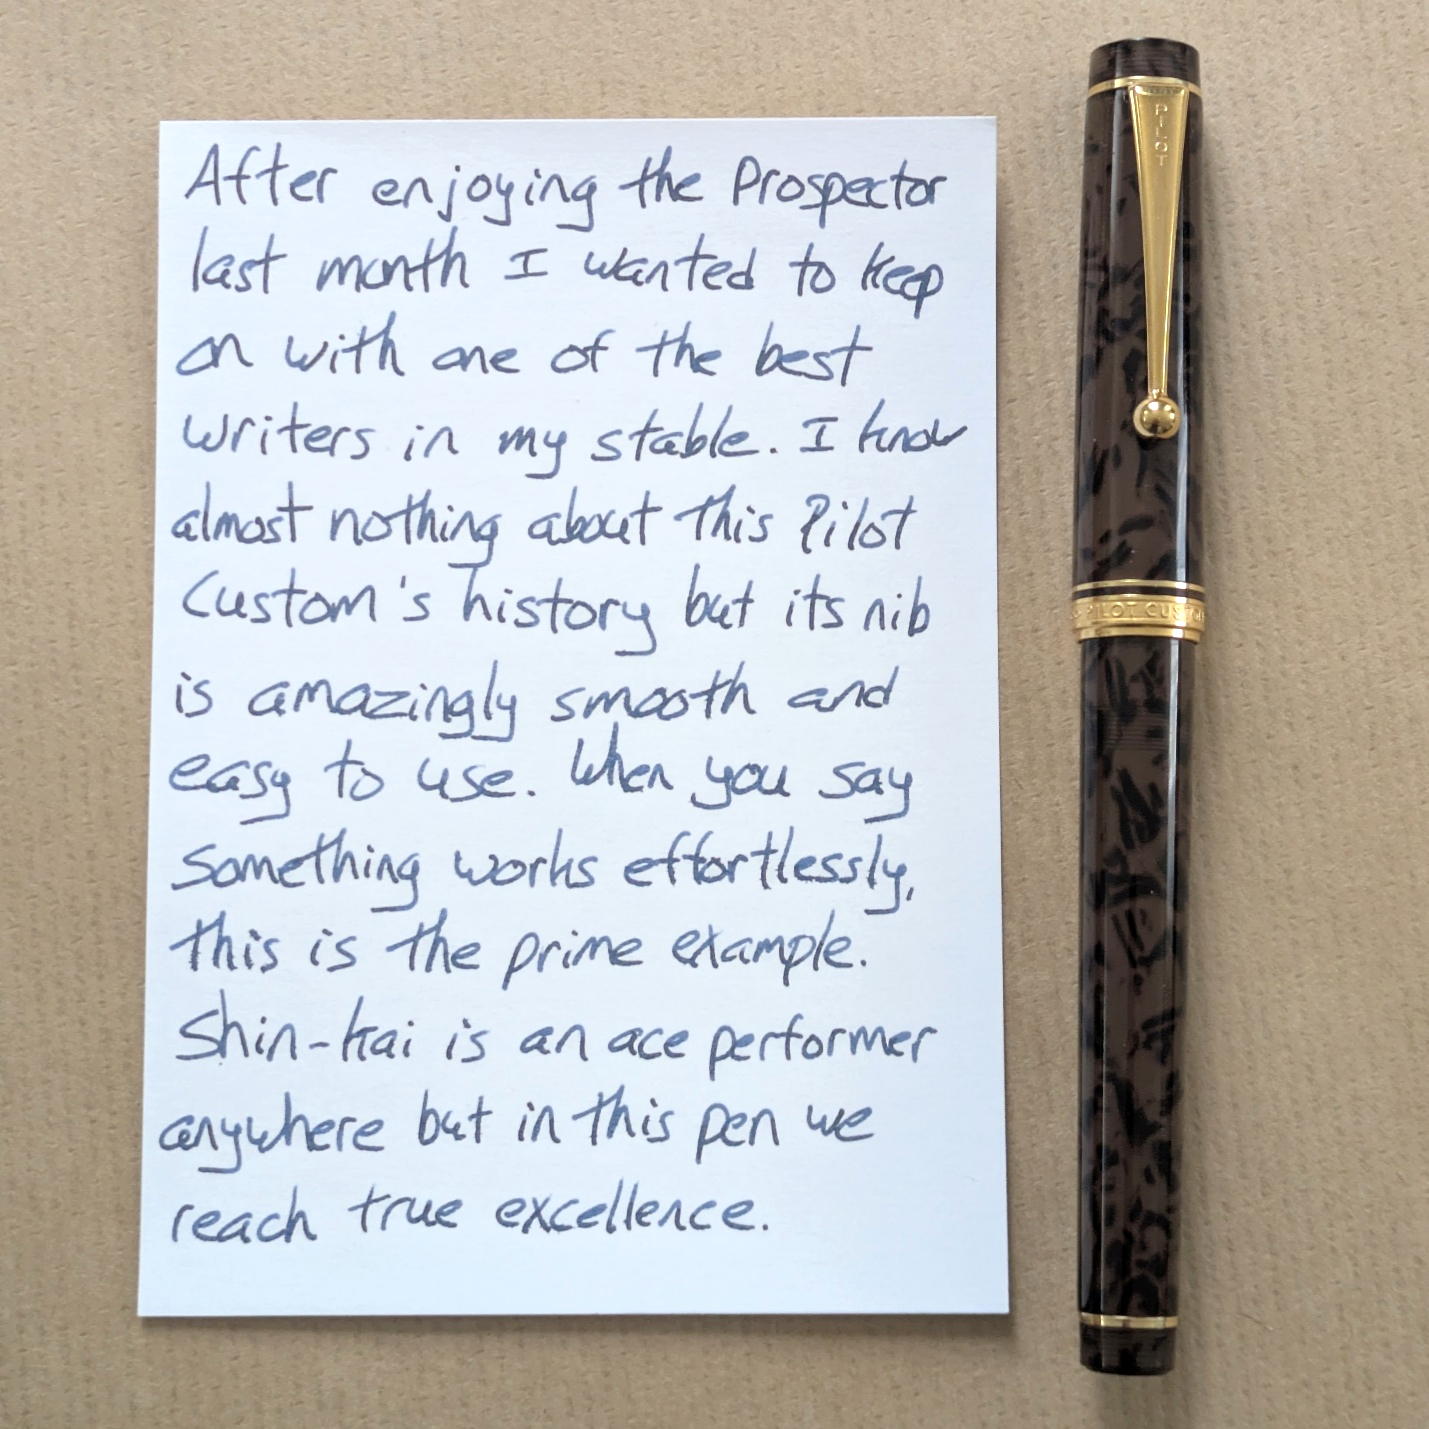 After enjoying the Prospector
last month I wanted to keep
on with one of the best
writers in my stable. I know
almost nothing about this Pilot
Custom's history but its nib
is amazingly smooth and
easy to use. When you say
something works effortlessly,
this is the prime example.
Shin-kai is an ace performer
anywhere but in this pen we
reach true excellence.
PILOT
PILOT CUSTOM